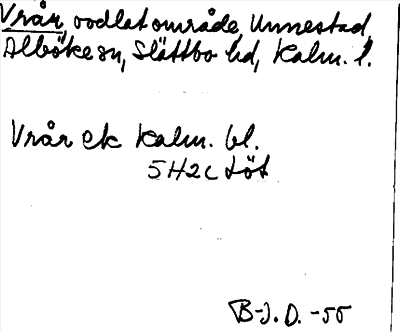 Vrår, oodlat område Unnestad,
Alböke sn, Slättbo hd, Kalm. l.
Vrår ek Kalm. bl.
5H2c Löt
B-J.D. -55